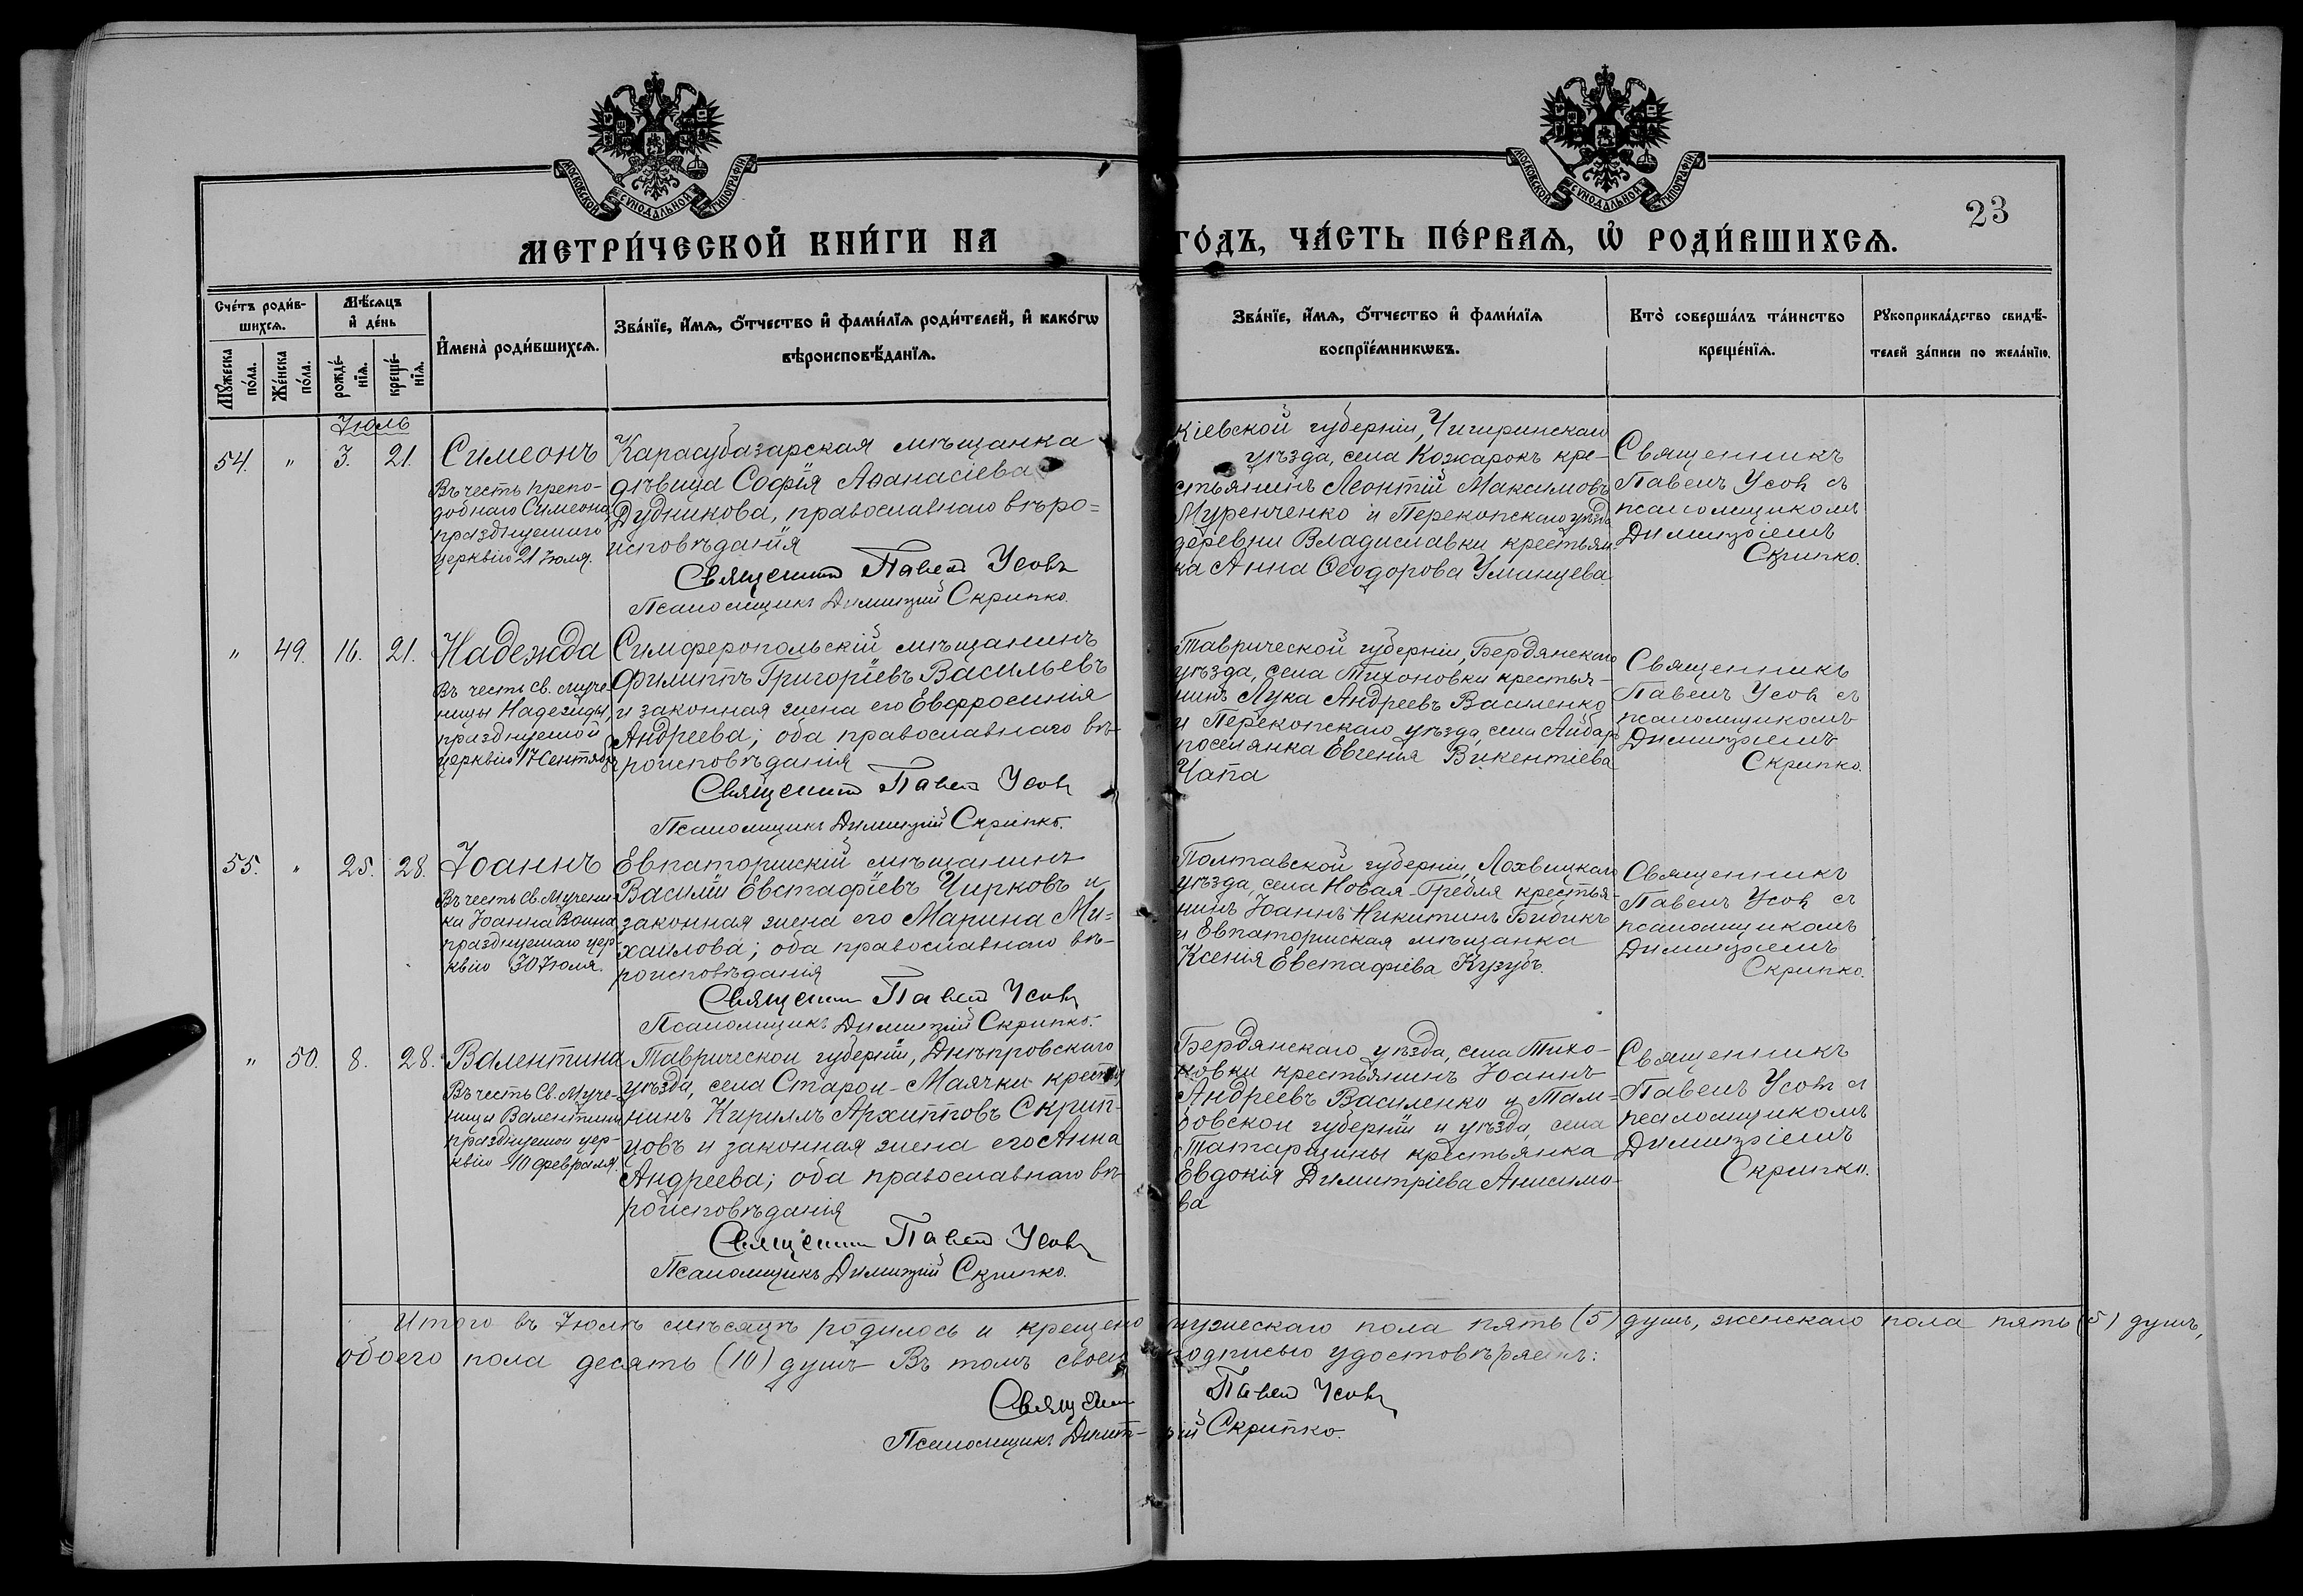 МОСКОВСКОЙ СУНОДАЛЬНОЙ ТИПОГРАФІИ
МОСКОВСКОЙ СУНОДАЛЬНОЙ ТИПОГРАФІИ
23
МЕТРИ́ЧЕСКОЙ КНИ́ГИ НА ГО́ДЪ, ЧА́СТЬ ПЕ́РВАѦ, Ѡ҆ РОДИ́ВШИХСѦ.
Сче́тъ роди́в-
шихсѧ.
Мꙋ́жеска
по́ла.
Же́нска
по́ла.
Мѣ́сѧцъ
и҆ де́нь
рожде́-
нїѧ.
креще́-
нїѧ.
И҆мена̀ роди́вшихсѧ.
Зва́нїе, и҆́мѧ, ѻ҆́тчество и҆ фами́лїѧ роди́телей, и҆ како́гѡ
вѣроисповѣ́данїѧ.
Зва́нїе, и҆́мѧ, ѻ҆́тчество и҆ фами́лїѧ
воспрїе́мникѡвъ.
Кто̀ соверша́лъ та́инство
креще́нїѧ.
Рꙋкоприкла́дство свидѣ́-
телей за́писи по жела́нїю.
Іюль
54. " 3. 21.
Симеонъ
Въ честь препо-
добнаго Симеона
празднуемаго
церквію 21 Іюля.
Карасубазарская мѣщанка
дѣвица Софія Аѳанасіева
Дудникова, православнаго вѣро=
исповѣданія
Священникъ Павелъ Усовъ
Псаломщикъ Димитрій Скрипко.
Кіевской губерніи, Чигиринскаго
уѣзда, села Кожарокъ кре-
стьянинъ Леонтій Максимовъ
Муренченко и Перекопскаго уѣзда
деревни Владиславки крестьян-
ка Анна Ѳеодорова Уманцева
Священникъ
Павелъ Усовъ съ
псаломщикомъ
Димитріемъ
Скрипко.
" 49. 16. 21.
Надежда
Въ честь св. муче-
ницы Надежды,
празднуемой
церквію 17 Сентября
Симферопольскій мѣщанинъ
Филиппъ Григоріевъ Васильевъ
и законная жена его Евфросинія
Андреева; оба православнаго вѣ-
роисповѣданія
Священникъ Павелъ Усовъ
Псаломщикъ Димитрій Скрипко.
Таврической губерніи, Бердянскаго
уѣзда, села Тихоновки крестья-
нинъ Лука Андреевъ Василенко
и Перекопскаго уѣзда, села Айбаръ
поселянка Евгенія Викентіева
Чапа
Священникъ
Павелъ Усовъ съ
псаломщикомъ
Димитріемъ
Скрипко.
55. " 25. 28.
Іоаннъ
Въ честь Св. Мучени-
ка Іоанна Воина
празднуемаго цер-
квію 30 Іюля.
Евпаторійскій мѣщанинъ
Василій Евстафіевъ Чирковъ и
законная жена его Марина Ми=
хаилова; оба православнаго вѣ-
роисповѣданія
Священникъ Павелъ Усовъ
Псаломщикъ Димитрій Скрипко.
Полтавской губерніи, Лохвицкаго
уѣзда, села Новая-Гребля крестья-
нинъ Іоаннъ Никитинъ Бибикъ
и Евпаторійская мѣщанка
Ксенія Евстафіева Кузубъ.
Священникъ
Павелъ Усовъ съ
псаломщикомъ
Димитріемъ
Скрипко.
" 50. 8. 28.
Валентина
Въ честь Св. Муче-
ницы Валентины
празднуемой цер-
квію 10 февраля.
Таврической губерніи, Днѣпровскаго
уѣзда, села Старой-Маячки крестья
нинъ Кириллъ Архипповъ Скрип-
цовъ и законная жена его Анна
Андреева; оба православнаго вѣ-
роисповѣданія
Священникъ Павелъ Усовъ
Псаломщикъ Димитрій Скрипко.
Бердянскаго уѣзда, села Тихо-
новки крестьянинъ Іоаннъ
Андреевъ Василенко и Там=
бовской губерніи и уѣзда, села
Татарщины крестьянка
Евдокія Димитріева Анисимо-
ва
Священникъ
Павелъ Усовъ съ
псаломщикомъ
Димитріемъ
Скрипко.
Итого въ Іюлѣ мѣсяцѣ родилось и крещено мужескаго пола пять (5) душъ, женскаго пола пять (5) душъ,
обоего пола десять (10) душъ. Въ томъ своею подписью удостовѣряемъ:
Священникъ Павелъ Усовъ
Псаломщикъ Димитрій Скрипко.